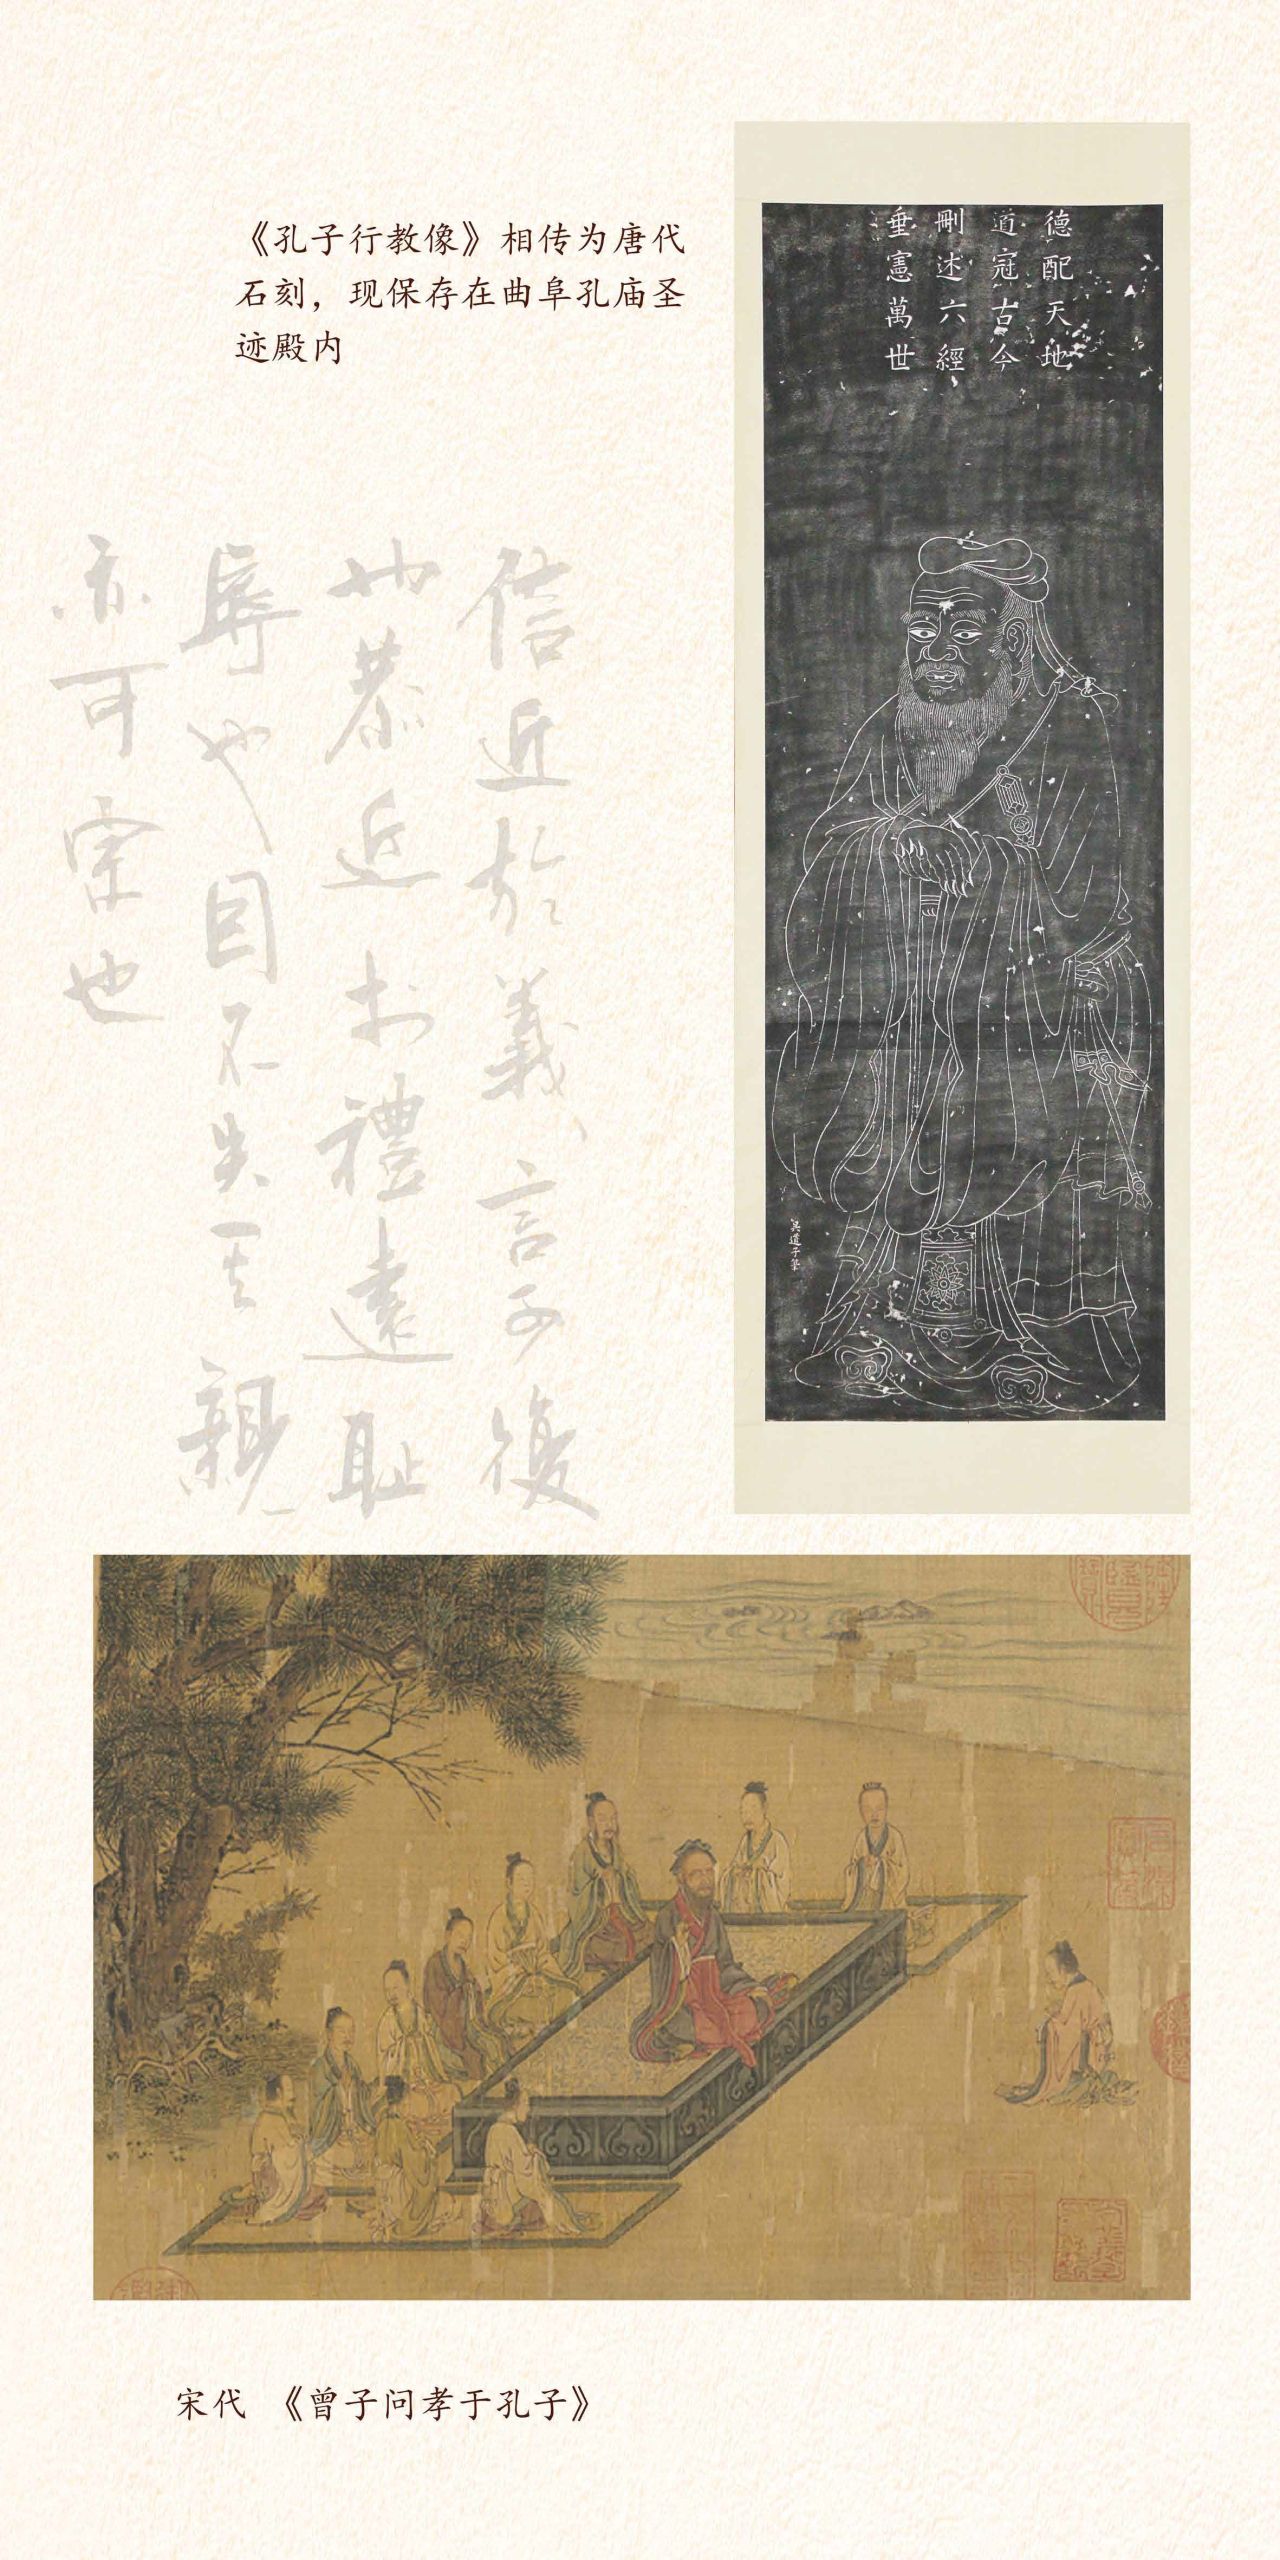 《孔子行教像》相传为唐代
石刻，现保存在曲阜孔庙圣
迹殿内
德配天地
道冠古今
刪述六經
垂憲萬世
吳道子筆
信近於義言可復
也恭近於禮遠恥
辱也因不失其親
亦可宗也
宋代 《曾子问孝于孔子》